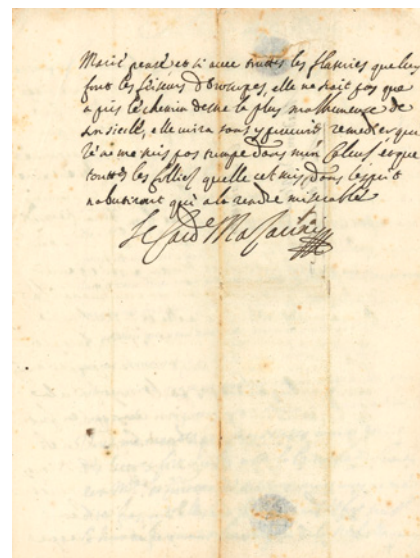 Marié pensé et si avec touttes les flatteries que luy
font les , elle ne voit pas que
a pris le chemin d'estre la plus malheureuse de
son siecle, elle verra sans y pouvoir remedier que
Ie ne me suis pas trompé dans mon calcul, et que
touttes les follies quelle s'est mis dans lesprit
n'aboutiront qu'a la rendre miserable
Le Card.e Mazarini